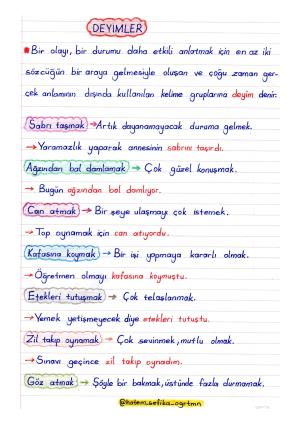 DEYİMLER
Bir olayı, bir durumu daha etkili anlatmak için en az iki
sözcüğün bir araya gelmesiyle oluşan ve çoğu zaman ger-
çek anlamının dışında kullanılan kelime gruplarına deyim denir.
Sabrı taşmak → Artık dayanamayacak duruma gelmek.
→ Yaramazlık yaparak annesinin sabrını taşırdı.
Ağzından bal damlamak → Çok güzel konuşmak.
→ Bugün ağzından bal damlıyor.
Can atmak → Bir şeye ulaşmayı çok istemek.
→ Top oynamak için can atıyordu.
Kafasına koymak → Bir işi yapmaya kararlı olmak.
→ Öğretmen olmayı kafasına koymuştu.
Etekleri tutuşmak → Çok telaşlanmak.
→ Yemek yetişmeyecek diye etekleri tutuştu.
Zil takıp oynamak → Çok sevinmek, mutlu olmak.
→ Sınavı geçince zil takıp oynadım.
Göz atmak → Şöyle bir bakmak, üstünde fazla durmamak.
@hatem_sefika_ogrtmn